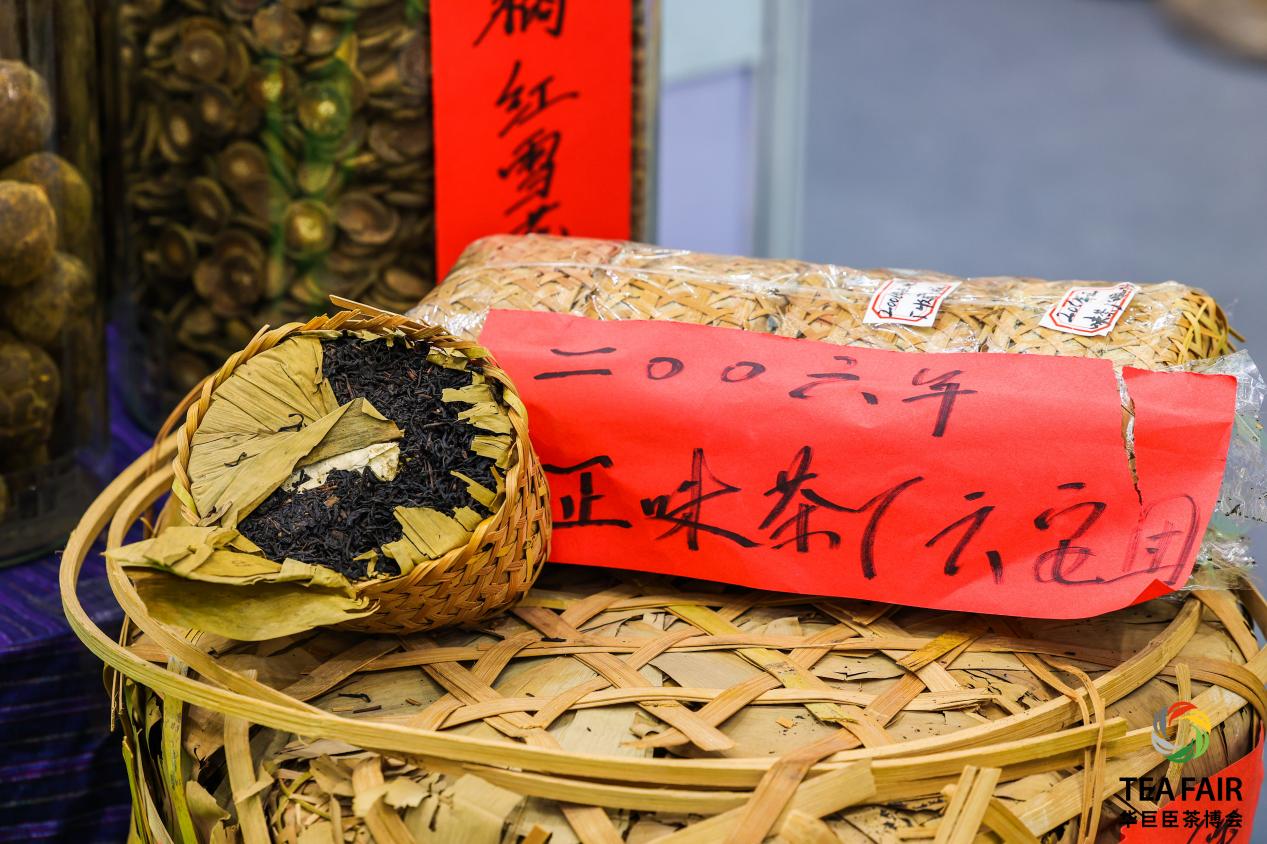 红雪茶
二〇〇六年
正味茶(六安团
TEA FAIR
华巨臣茶博会